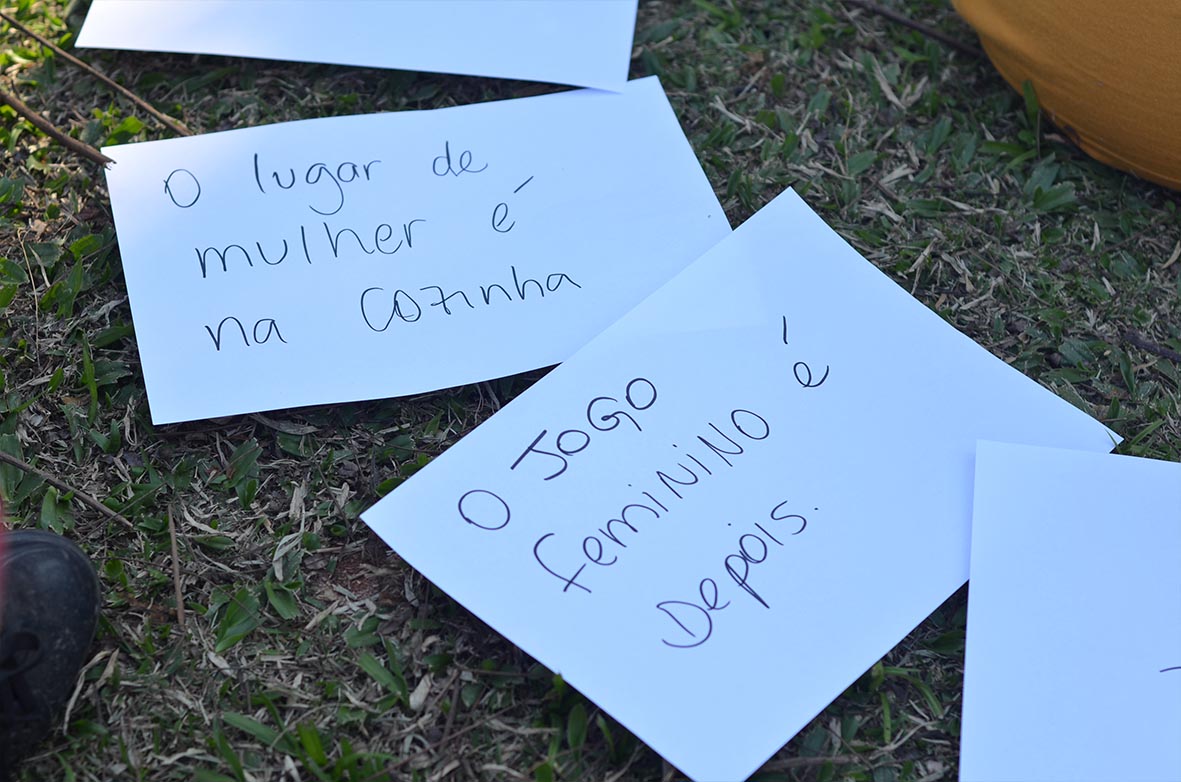 O lugar de
mulher é
na cozinha
O JOGO
feminino é
Depois.